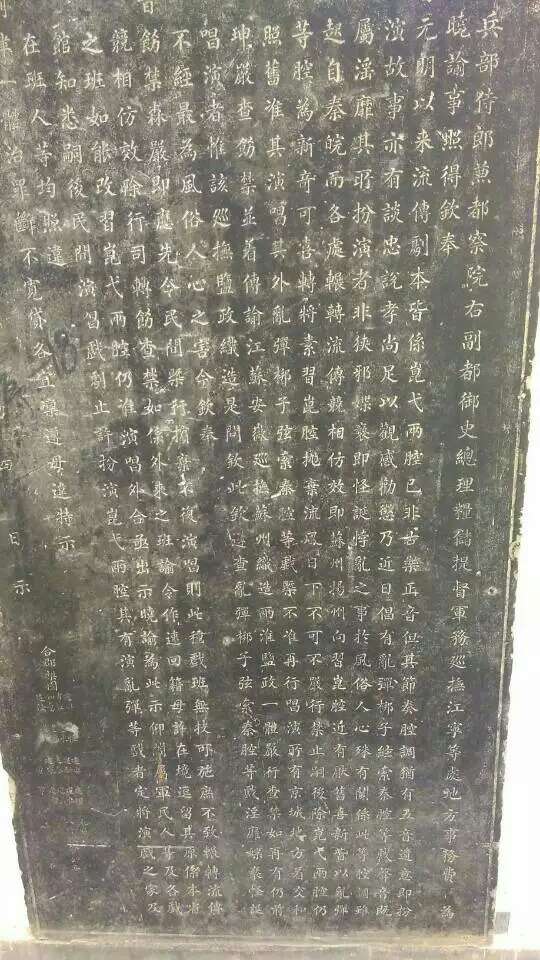 兵部侍郎兼都察院右副都御史總理糧儲提督軍務巡撫江寧等處地方事務費 為
曉諭事照得欽奉
元明以来流傳劇本皆係崑弋兩腔已非古樂正音但其節奏腔調猶有五音遺意即扮
演故事亦有談忠說孝尚足以觀感勸懲乃近日倡有亂彈梆子絃索秦腔等戲聲音既
屬淫靡其所扮演者非狹邪媟褻即怪誕悖亂之事於風俗人心殊有關係此等腔調雖
起自秦皖而各處輾轉流傳競相仿效即蘇州揚州向習崑腔近有厭舊喜新皆以亂彈
等腔為新奇可喜轉將素習崑腔拋棄流風日下不可不嚴行禁止嗣後除崑弋兩腔仍
照舊准其演唱其外亂彈梆子弦索秦腔等戲槩不准再行唱演所有京城地方着交和
珅嚴查飭禁並着傳諭江蘇安徽巡撫蘇州織造兩淮鹽政一體嚴行查禁如再有仍前
唱演者惟該巡撫鹽政織造是問欽此欽遵查亂彈梆子弦索秦腔等戲淫靡媟褻怪誕
不經最為風俗人心之害今欽奉
飭禁森嚴即應先令民間槩行擯棄不復演唱則此種戲班無技可施庶不致輾轉流傳
競相仿效除行司轉飭查禁如係外來之班諭令作速回籍毋許在境逗留其原係本省
之班如能改習崑弋兩腔仍准演唱外合亟出示曉諭為此示仰闔屬軍民人等及各戲
館知悉嗣後民間演唱戲劇止許扮演崑弋兩腔其有演亂彈等戲者定將演戲之家及
在班人等均照違
一體治罪斷不寬貸各宜凜遵毋違特示
日示